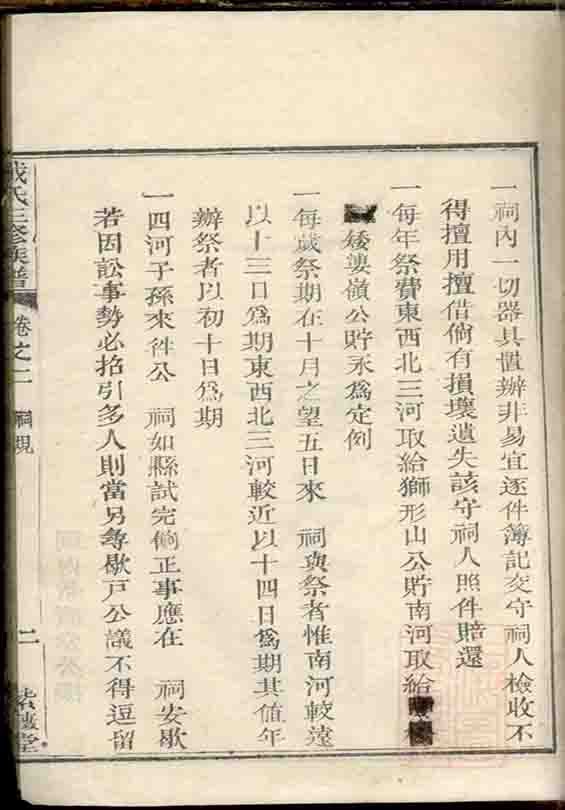 一祠內一切器具置辦非易宜逐件簿記交守祠人檢收不
得擅用擅借倘有損壞遺失該守祠人照件賠還
一每年祭費東西北三河取給獅形山公貯南河取給
矮婆嶺公貯永爲定例
一每歲祭期在十月之望五日來 祠與祭者惟南河較遠
以十三日爲期東西北三河較近以十四日爲期其值年
辦祭者以初十日爲期
一四河子孫來往公 祠如縣試完餉正事應在 祠安歇
若因訟事勢必招引多人則當另尋歇戶公議不得逗留
氏三修族譜 卷之二 祠規 二 堂